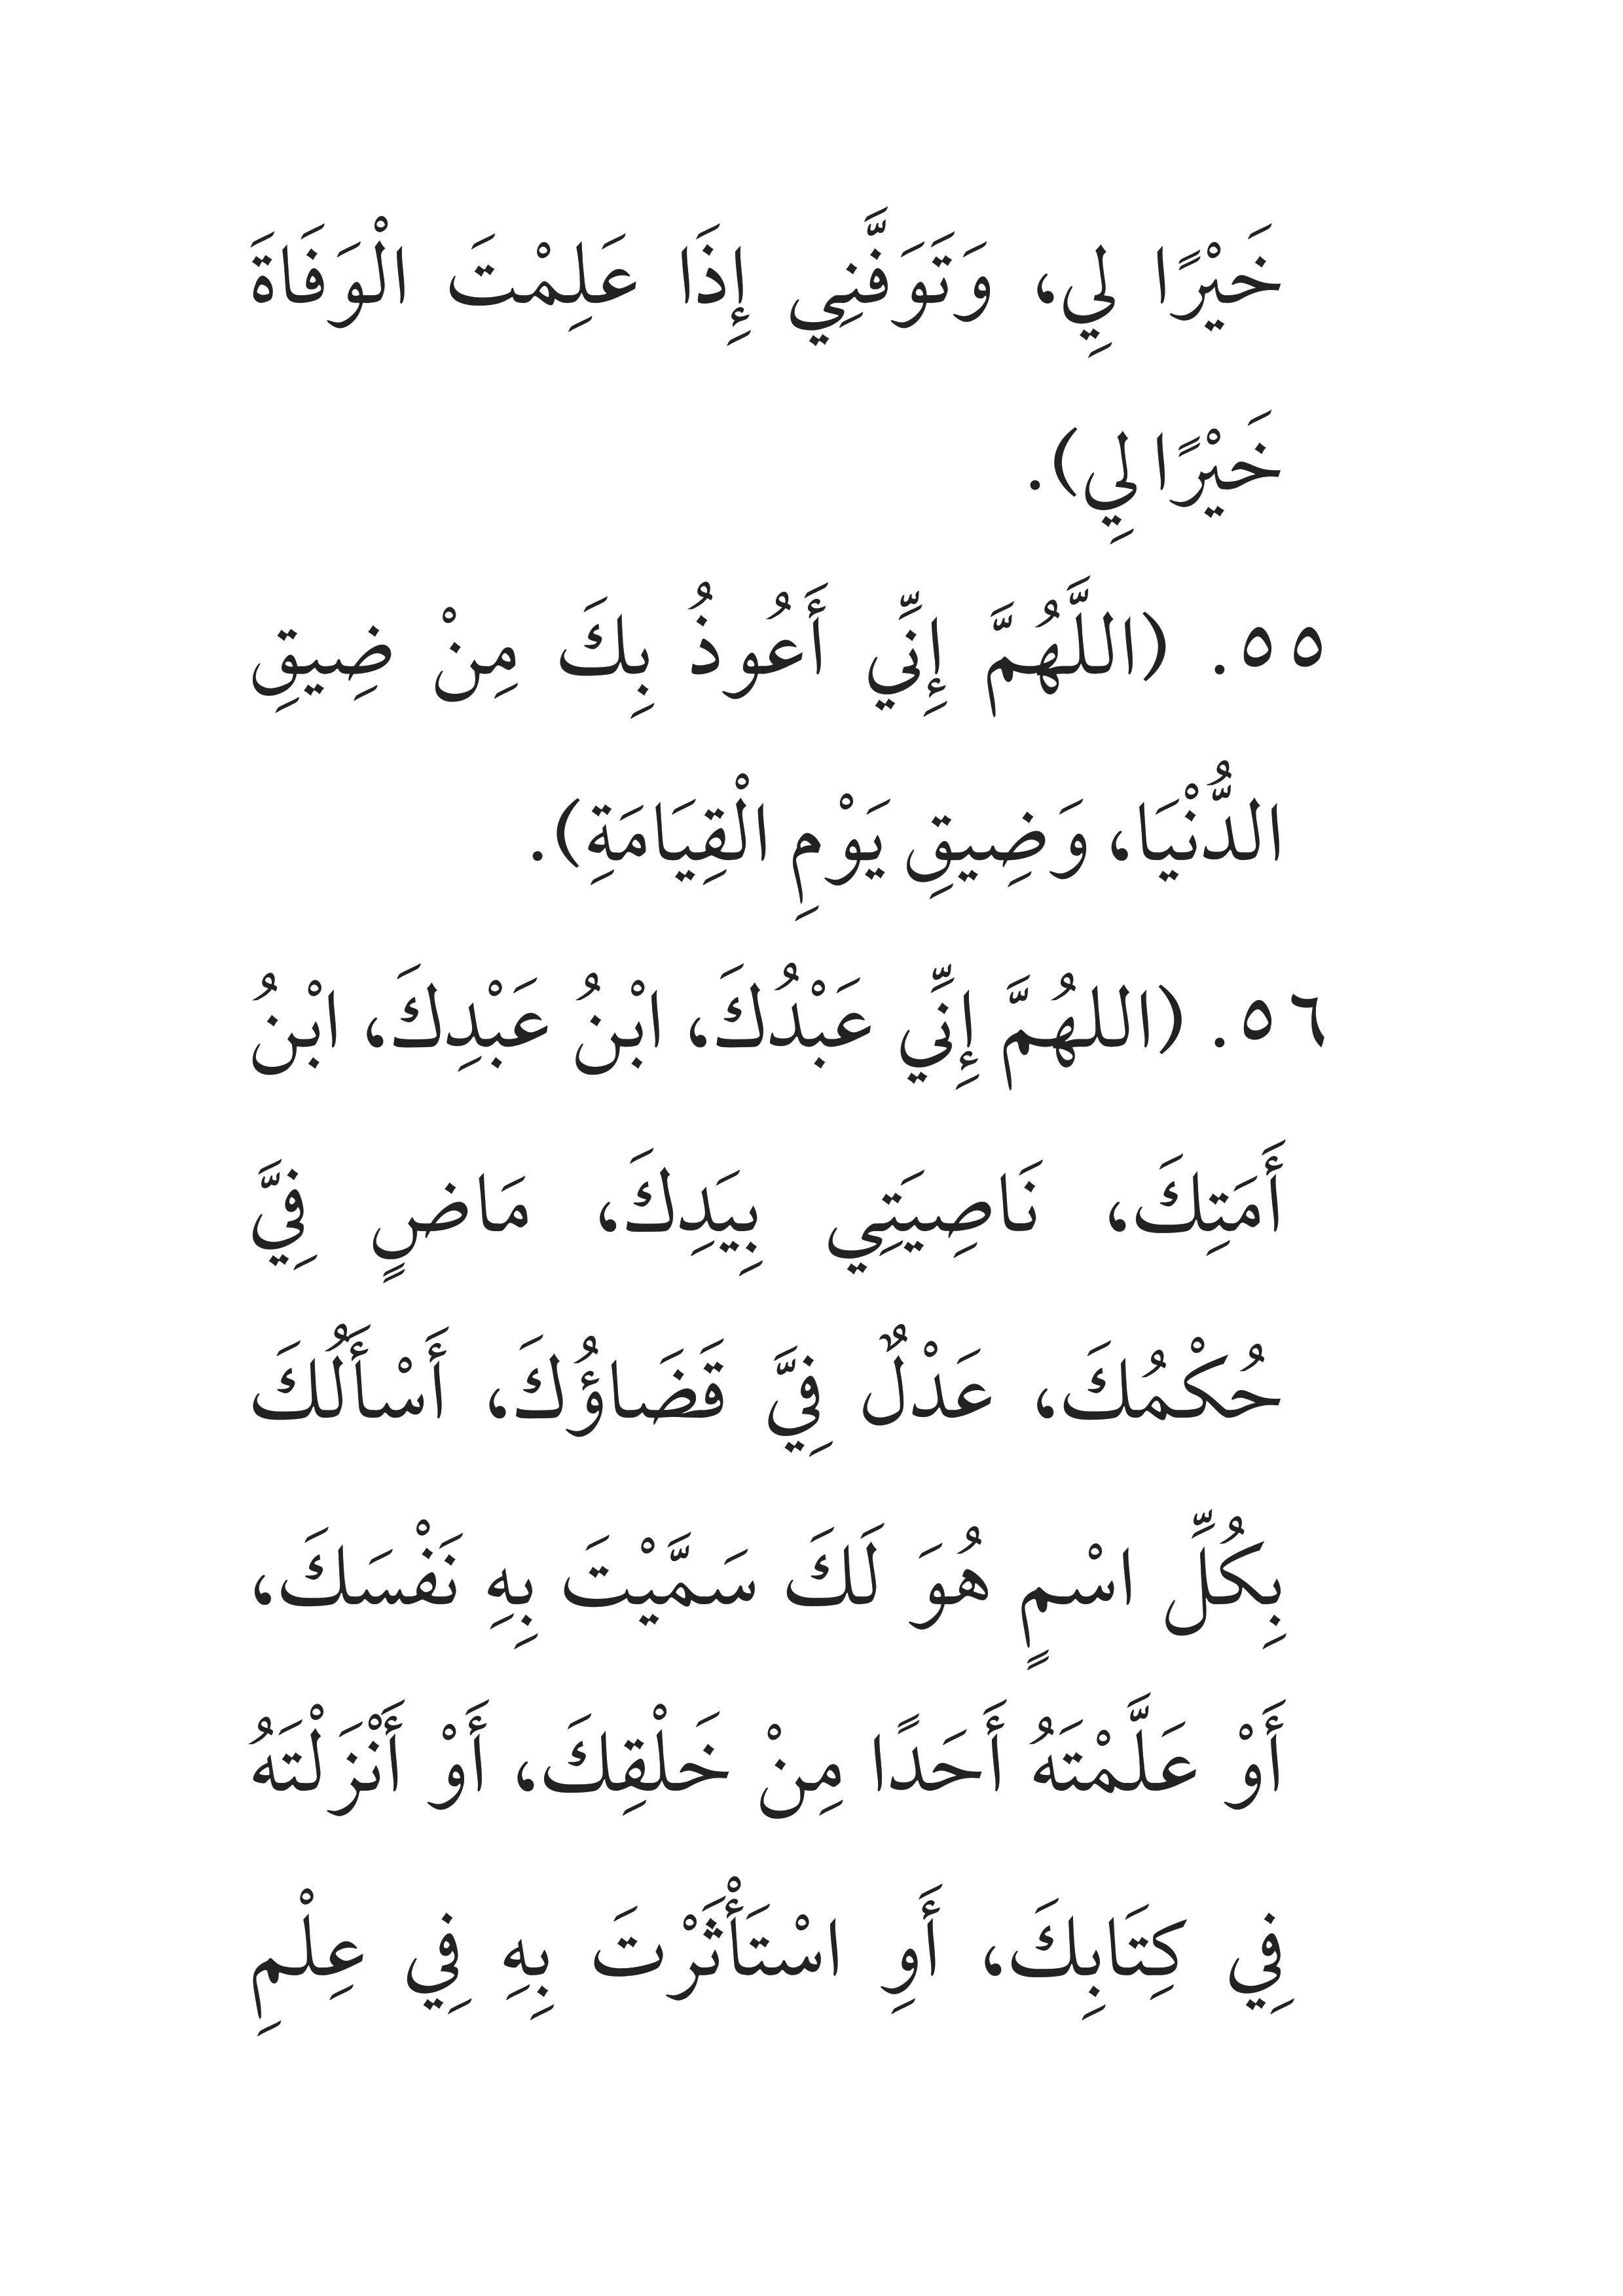 خَيْرًا لِي، وَتَوَفَّنِي إِذَا عَلِمْتَ الْوَفَاةَ
خَيْرًا لِي).
٥٥. (اللَّهُمَّ إِنِّي أَعُوذُ بِكَ مِنْ ضِيقِ
الدُّنْيَا، وَضِيقِ يَوْمِ الْقِيَامَةِ).
٥٦. (اللهُمَّ إِنِّي عَبْدُكَ، ابْنُ عَبْدِكَ، ابْنُ
أَمَتِكَ، نَاصِيَتِي بِيَدِكَ، مَاضٍ فِيَّ
حُكْمُكَ، عَدْلٌ فِيَّ قَضَاؤُكَ، أَسْأَلُكَ
بِكُلِّ اسْمٍ هُوَ لَكَ سَمَّيْتَ بِهِ نَفْسَكَ،
أَوْ عَلَّمْتَهُ أَحَدًا مِنْ خَلْقِكَ، أَوْ أَنْزَلْتَهُ
فِي كِتَابِكَ، أَوِ اسْتَأْثَرْتَ بِهِ فِي عِلْمِ